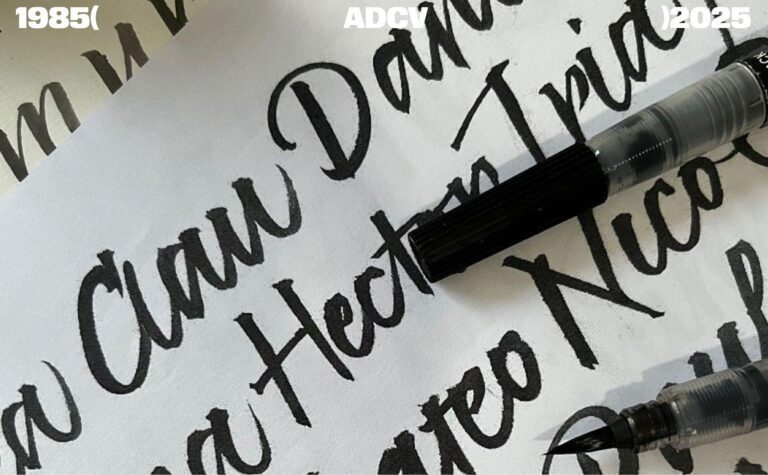 1985( ADCV )2025
a Clau Dan
na Hector Iria
ateo Nico